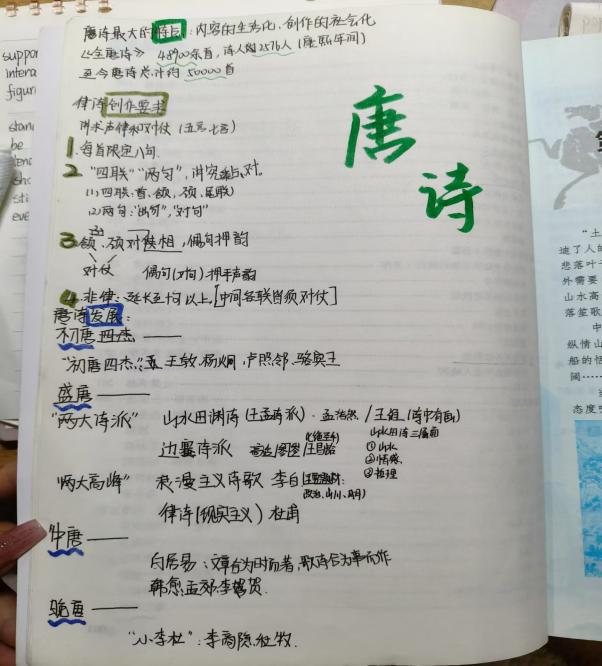 唐诗最大的特点：内容的生活化，创作的社会化
《全唐诗》48900余首，诗人约2576人（康熙年间）
至今唐诗总计约50000首
唐诗
律诗创作要求
讲求声律和对仗（五言七言）
1. 每首限定八句.
2. "四联""两句"，讲究粘对.
(1) 四联、首、颔、颈、尾联）
(2) 两句："出句"，"对句"
3. 颔、颈对 相，偶句押韵
对仗 偶句（对句）押平声韵
4. 排律：延长至十句以上，[中间各联皆须对仗]
唐诗发展：
初唐四杰——
"初唐四杰"：王勃、杨炯、卢照邻、骆宾王
盛唐——
"两大诗派" 山水田园诗（王孟诗派）. 孟浩然 / 王维（诗中有画）
山水田园诗三层面
① 山水
② 情感
③ 哲理
边塞诗派 高适/岑参/王昌龄
"两大高峰" 浪漫主义诗歌 李白
政治、山川、
律诗（现实主义）杜甫
中唐——
白居易：文章合为时而著，歌诗合为事而作
韩愈、孟郊、李贺、贺.
晚唐——
"小李杜"：李商隐、杜牧.
suppor
intera
figur
stan
be
sti
eve
"土
迹了人的
悲落叶
外需要
山水高
落笙歌
中
纵情山
船的恬
阔……
态度